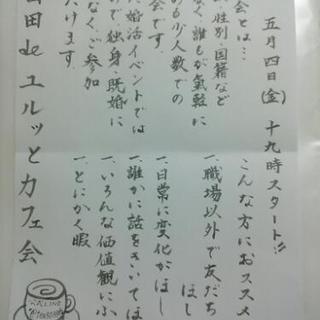 五月四日(金) 十九時スタート!!
会とは…
性別・国籍など
なく、誰もが気軽に
める少人数での
会です。
婚活イベントでは
で独身・既婚に
なくご参加
だけます。
こんな方におススメ
一、職場以外で友だち
ほし
一、日常に変化がほし
一、誰かに話をきいてほ
一、いろんな価値観にふ
一、とにかく暇
田 de ユルッとカフェ会